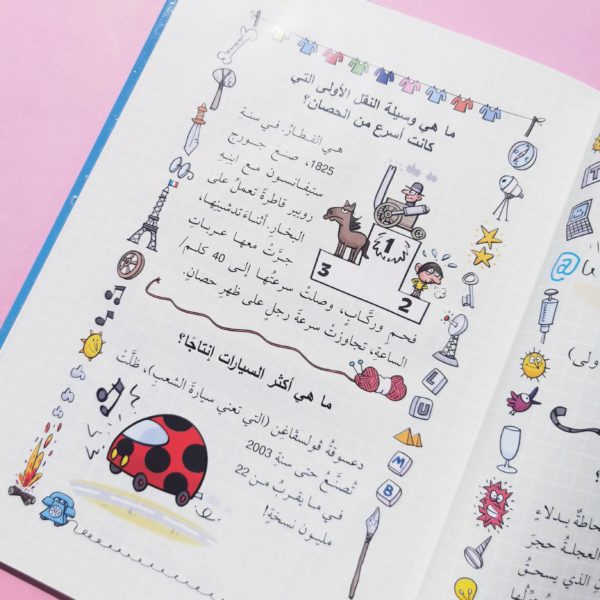 ما هي وسيلة النقل الأولى التي
كانت أسرع من الحصان؟
هي القطارُ. في سنةِ
1825، صنعَ جورج
ستيفانسون مع ابنِهِ
روبير قاطرةً تعملُ على
البخارِ. أثناءَ تدشينِها،
جرَّتْ معها عرباتِ
فحمٍ وركَّابٍ، وصلتْ سرعتُها إلى 40 كلم/
الساعة، تجاوزتْ سرعةَ رجلٍ على ظهرِ حصانٍ.
1
2
3
ما هي أكثر السيارات إنتاجًا؟
دعسوقةُ ڤولسڤاغن (التي تعني سيارةَ الشعبِ)، ظلَّتْ
تُصنَّعُ حتى سنةِ 2003
في ما يقربُ من 22
مليون نسخةٍ!
L
U
M
B
T
@
أولى)
بدلاءٍ
العجلةُ حجرَ
الذي يسحقُ